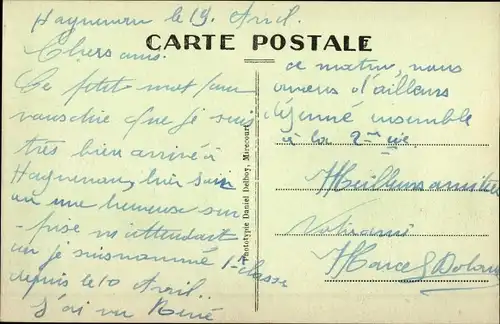 Haguenau le 19. Avril.
CARTE POSTALE
Chers amis.
Ce petit mot pour
vous dire que je suis
très bien arrivé à
Haguenau, hier soir
ou une heureuse sur
-prise m'attendait
car je suis nommé 1ère classe
depuis le 10 Avril..
J'ai vu René
ce matin, nous
avons d'ailleurs
déjeuné ensemble
à la 2ème Cie.
Meilleures amitiés
Votre ami
Marcel
Phototypie Daniel Delboy, Mirecourt